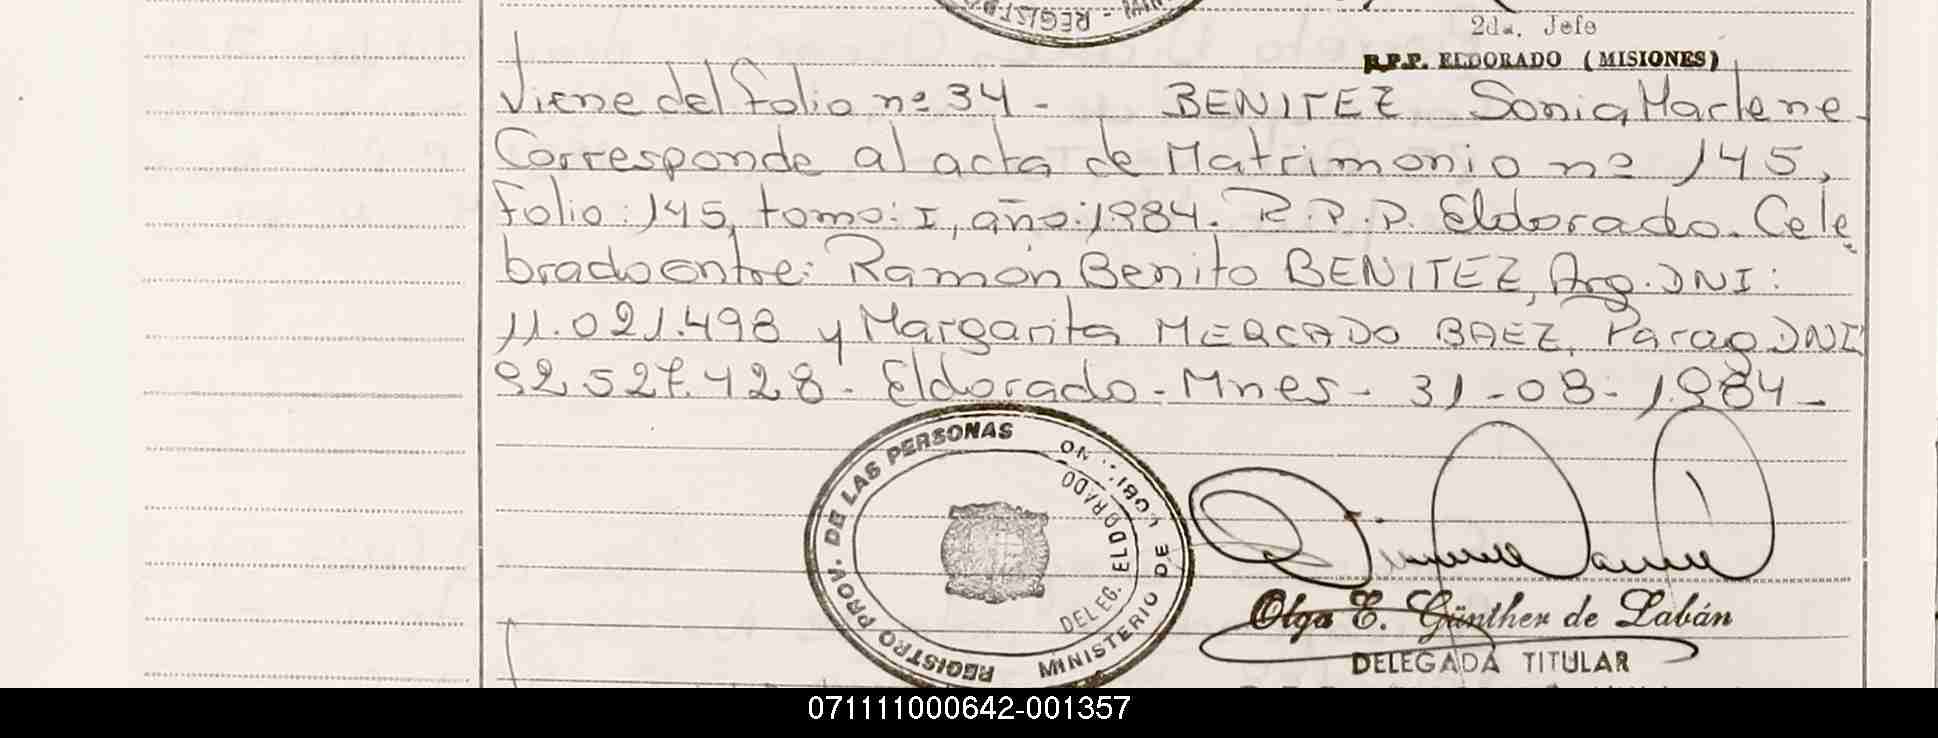 2da. Jefe
R.P.P. ELDORADO (MISIONES)
Viene del folio nº 34 - BENITEZ Sonia Marlene.
Corresponde al acta de Matrimonio nº 145,
folio: 145, tomo: I, año: 1984. R.P.P. Eldorado. Cele
brado entre: Ramón Benito BENITEZ, Arg. DNI:
11.021.498 y Margarita MERCADO BAEZ, Parag DNI
92.527.428 - Eldorado - Mnes - 31 - 08 - 1984 -
REGISTRO PROV. DE LAS PERSONAS
MINISTERIO DE GOBIERNO
DELEG. ELDORADO
Olga E. Günther de Labán
DELEGADA TITULAR
071111000642-001357